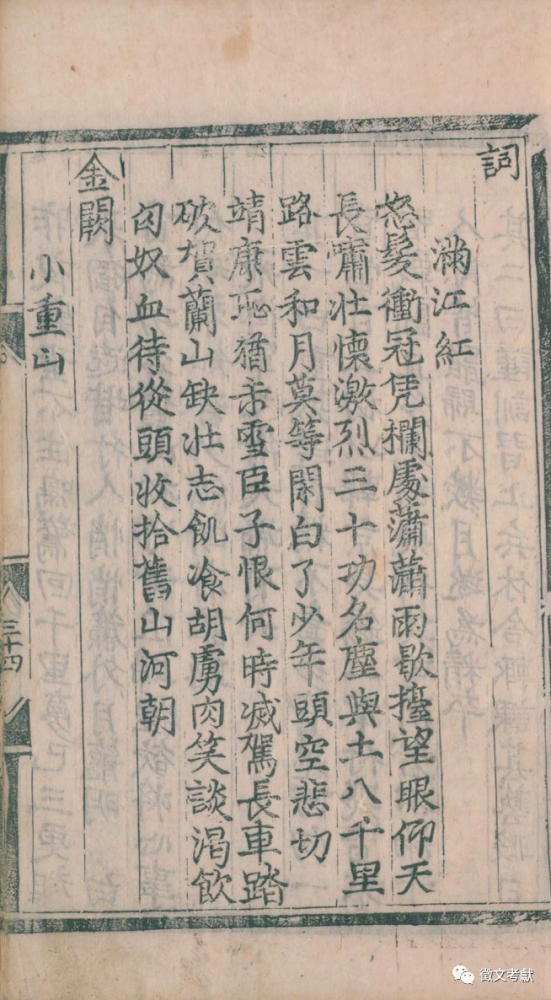 詞
滿江紅
怒髮衝冠凭欄處瀟瀟雨歇擡望眼仰天
長嘯壯懷激烈三十功名塵與土八千里
路雲和月莫等閑白了少年頭空悲切
靖康恥猶未雪臣子恨何時滅駕長車踏
破賀蘭山缺壯志飢飡胡虜肉笑談渴飲
匈奴血待從頭收拾舊山河朝
金闕
小重山
三十四
徵文考獻